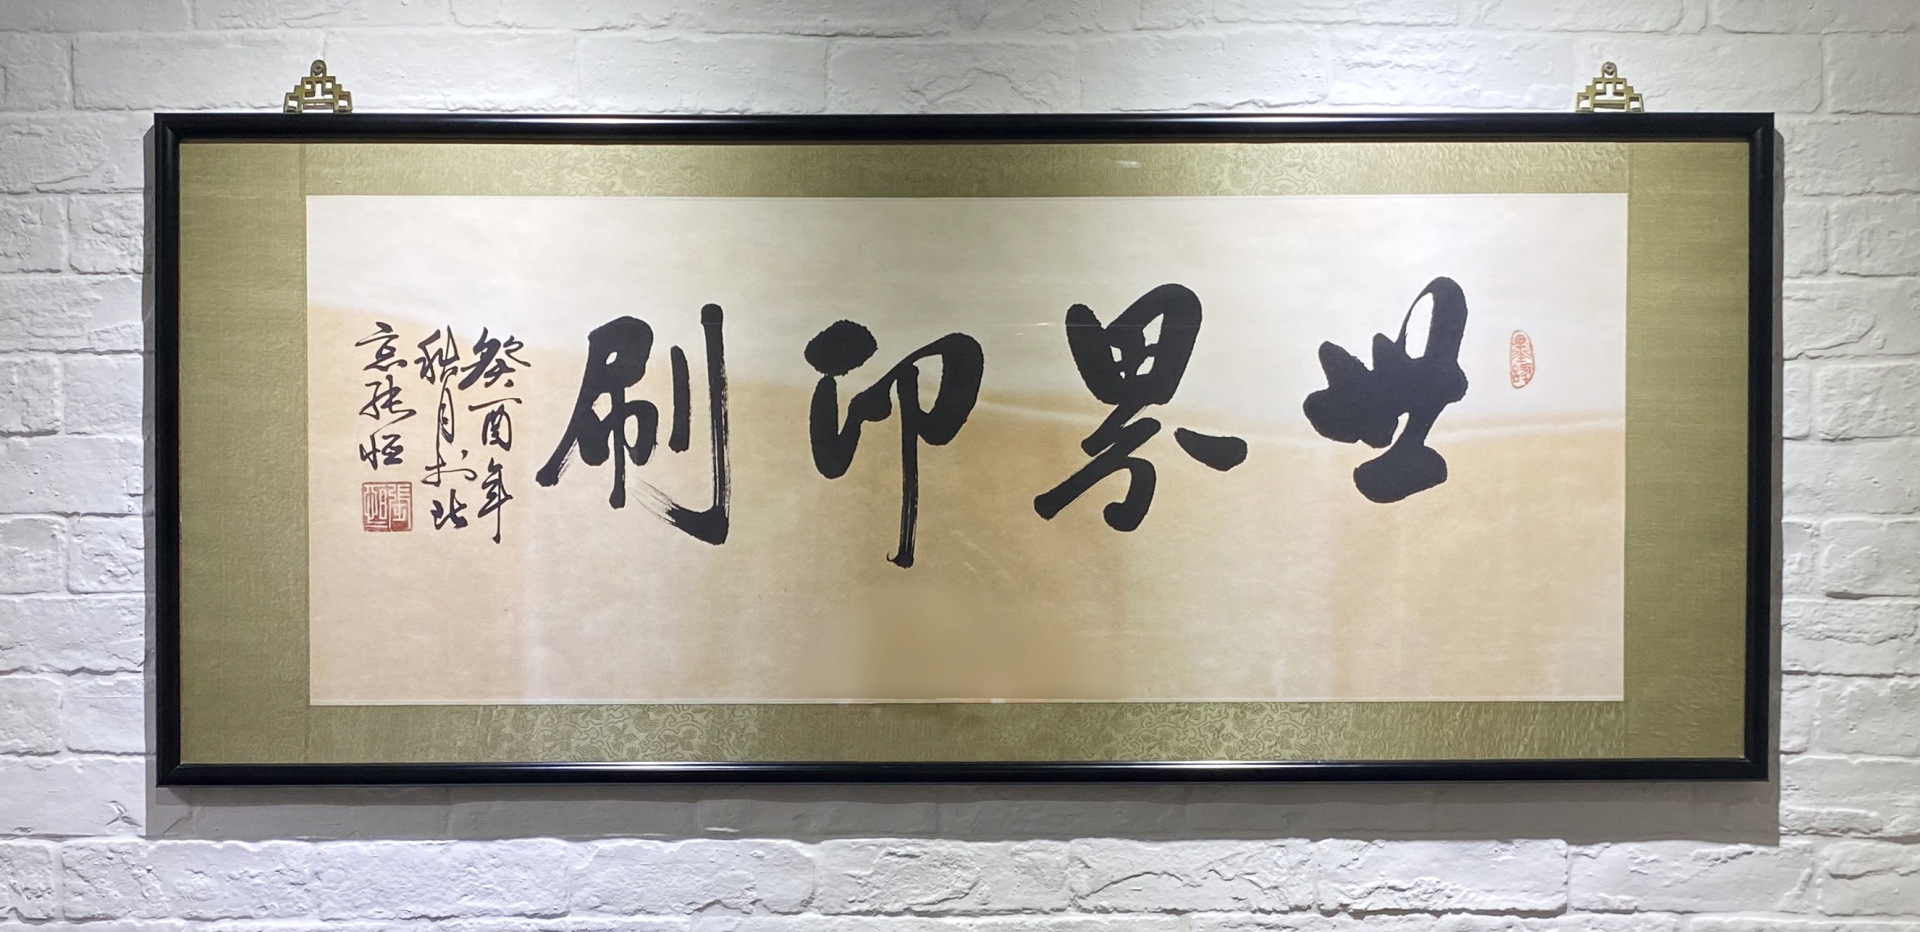 世界印刷
癸酉年
秋月於北
京張恒